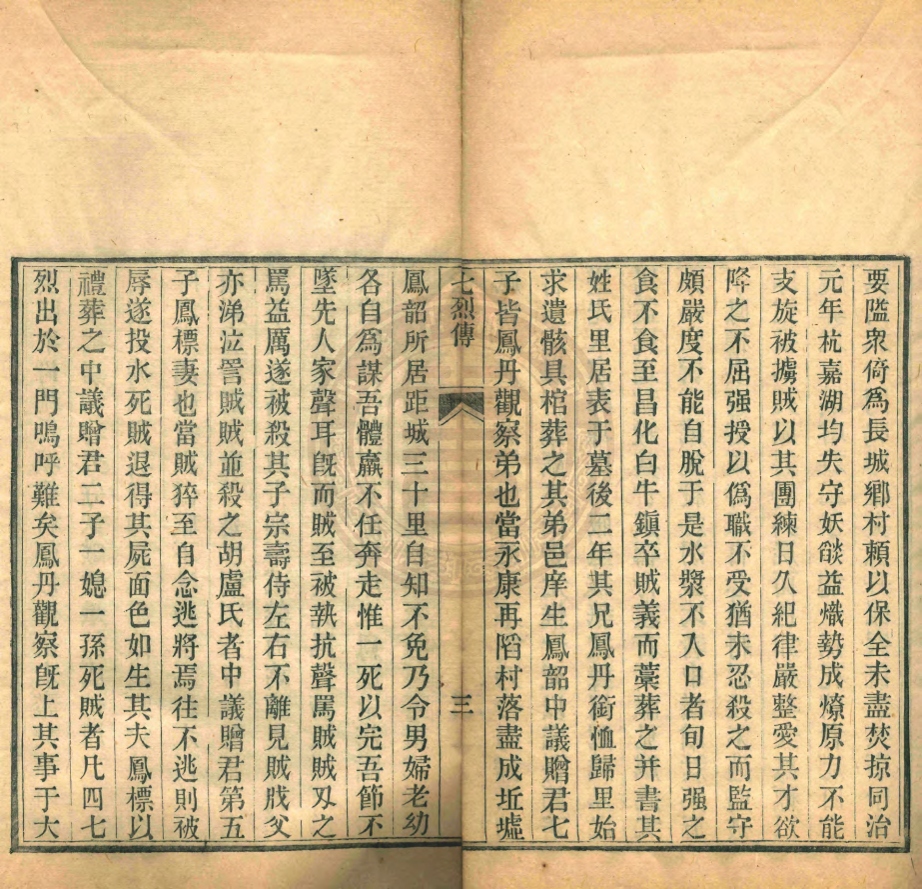 要隘衆倚爲長城鄉村賴以保全未盡焚掠同治
元年杭嘉湖均失守妖燄益熾勢成燎原力不能
支旋被擄賊以其團練日久紀律嚴整愛其才欲
降之不屈强授以僞職不受猶未忍殺之而監守
頗嚴度不能自脫于是水漿不入口者旬日强之
食不食至昌化白牛鎭卒賊義而藁葬之并書其
姓氏里居表于墓後二年其兄鳳丹銜恤歸里始
求遺骸具棺葬之其弟邑庠生鳳韶中議贈君七
子皆鳳丹觀察弟也當永康再陷村落盡成坵墟
七烈傳
三
鳳韶所居距城三十里自知不免乃令男婦老幼
各自爲謀吾體羸不任奔走惟一死以完吾節不
墜先人家聲耳旣而賊至被執抗聲罵賊賊刄之
罵益厲遂被殺其子宗壽侍左右不離見賊戕父
亦涕泣詈賊賊並殺之胡盧氏者中議贈君第五
子鳳標妻也當賊猝至自念逃將焉往不逃則被
辱遂投水死賊退得其屍面色如生其夫鳳標以
禮葬之中議贈君二子一媳一孫死賊者凡四七
烈出於一門嗚呼難矣鳳丹觀察旣上其事于大